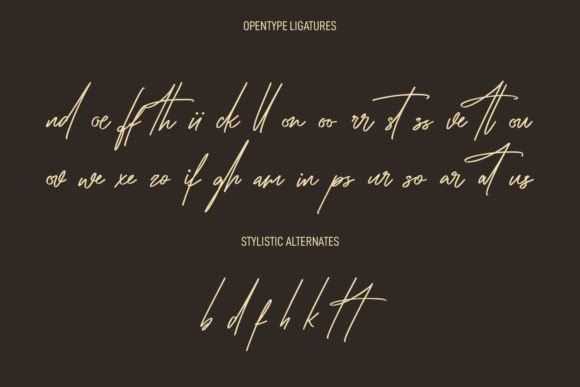 OPENTYPE LIGATURES
nd oe ff th ii ck ll on oo rr st ss ve tt ou
ov we xe zo if gh am in ps ur so ar at us
STYLISTIC ALTERNATES
b d f h k t t